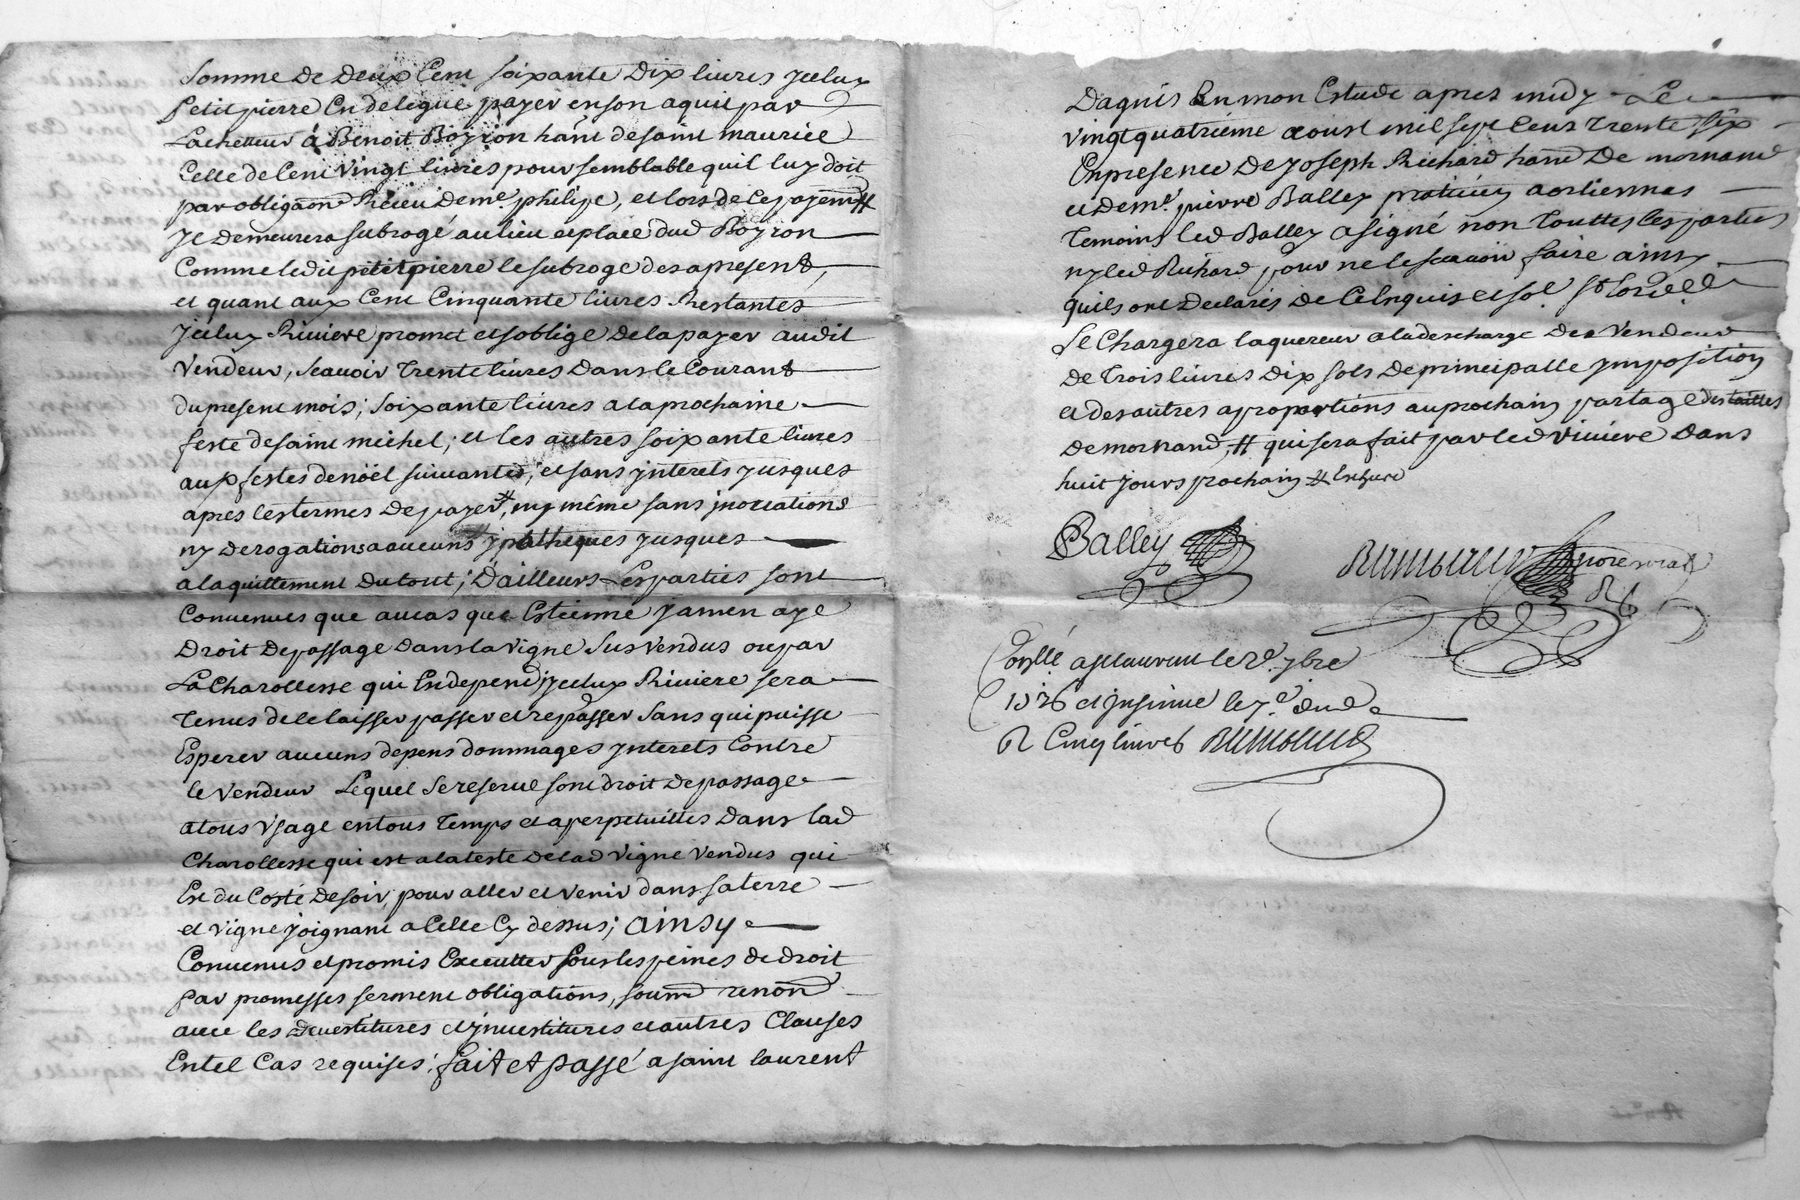 Somme de deux Cent soixante dix livres Jceluy
petitpierre En delegue payer en son aquit par
Lachetteur à Benoit Boyron hant de saint maurice
Celle de Cent vingt livres pour semblable quil luy doit
par obligaon Recieu de me. philipe, et lors de Ce payemt #
Je demeurera subrogé au lieu et place dud Boyron
Comme ledit petitpierre le subroge des apresent,
et quant aux Cent Cinquante livres Restantes
Jceluy Riviere promet et soblige de la payer audit
Vendeur, scavoir Trente livres dans le Courant
du present mois; soixante livres a la prochaine
feste de saint michel; et les autres soixante livres
aux festes de noël suivantes; et sans jnterets jusques
apres les termes de payer #, ny même sans jnovations
ny derogations a aucuns ypotheques jusques
alaquittement du tout; D'ailleurs Les parties sont
Convenues que au cas que Estienne jamen aye
Droit de passage dans la vigne sus vendus ou par
La Charollesse qui En depend jceluy Riviere sera
Tenus de le laisser passer et repasser sans qui puisse
Esperer aucuns depens dommages jnterets Contre
le vendeur Lequel se reserve son droit de passage
a tous usage en tous Temps et a perpetuittes dans lad
Charollesse qui est a la teste de lad vigne vendus qui
Est du Costé de soir, pour aller et venir dans sa terre
et vigne joignant a Celle Cy dessus; ainsy
Convenus et promis Executter sous les peines de droit
par promesses serment obligations, soumon renonon
avec les devestitures et jnvestitures et autres Clauses
En tel Cas requises; fait et passé a saint laurent
Dagnis En mon Estude apres midy Le
vingt quatrieme aoust mil sept Cens Trente six
En presence de Joseph Richard hant De mornand
et de me. pierre Balley praticien
Temoins led Balley a signé non Touttes les parties
ny led Richard pour ne le scavoir faire ainsy
quils ont Declarés de Ce Enquis et sol
Se Chargera laquereur a la descharge des vendeur
de Trois livres dix sols de principalle jmposition
et des autres a proportions au prochain partage des tailles
de mornand, # qui sera fait par led riviere dans
huit jours prochain #
Balley
Conllé a St laurent le 7bre
1736 et jnsinué le 7e dud
R Cinq livres